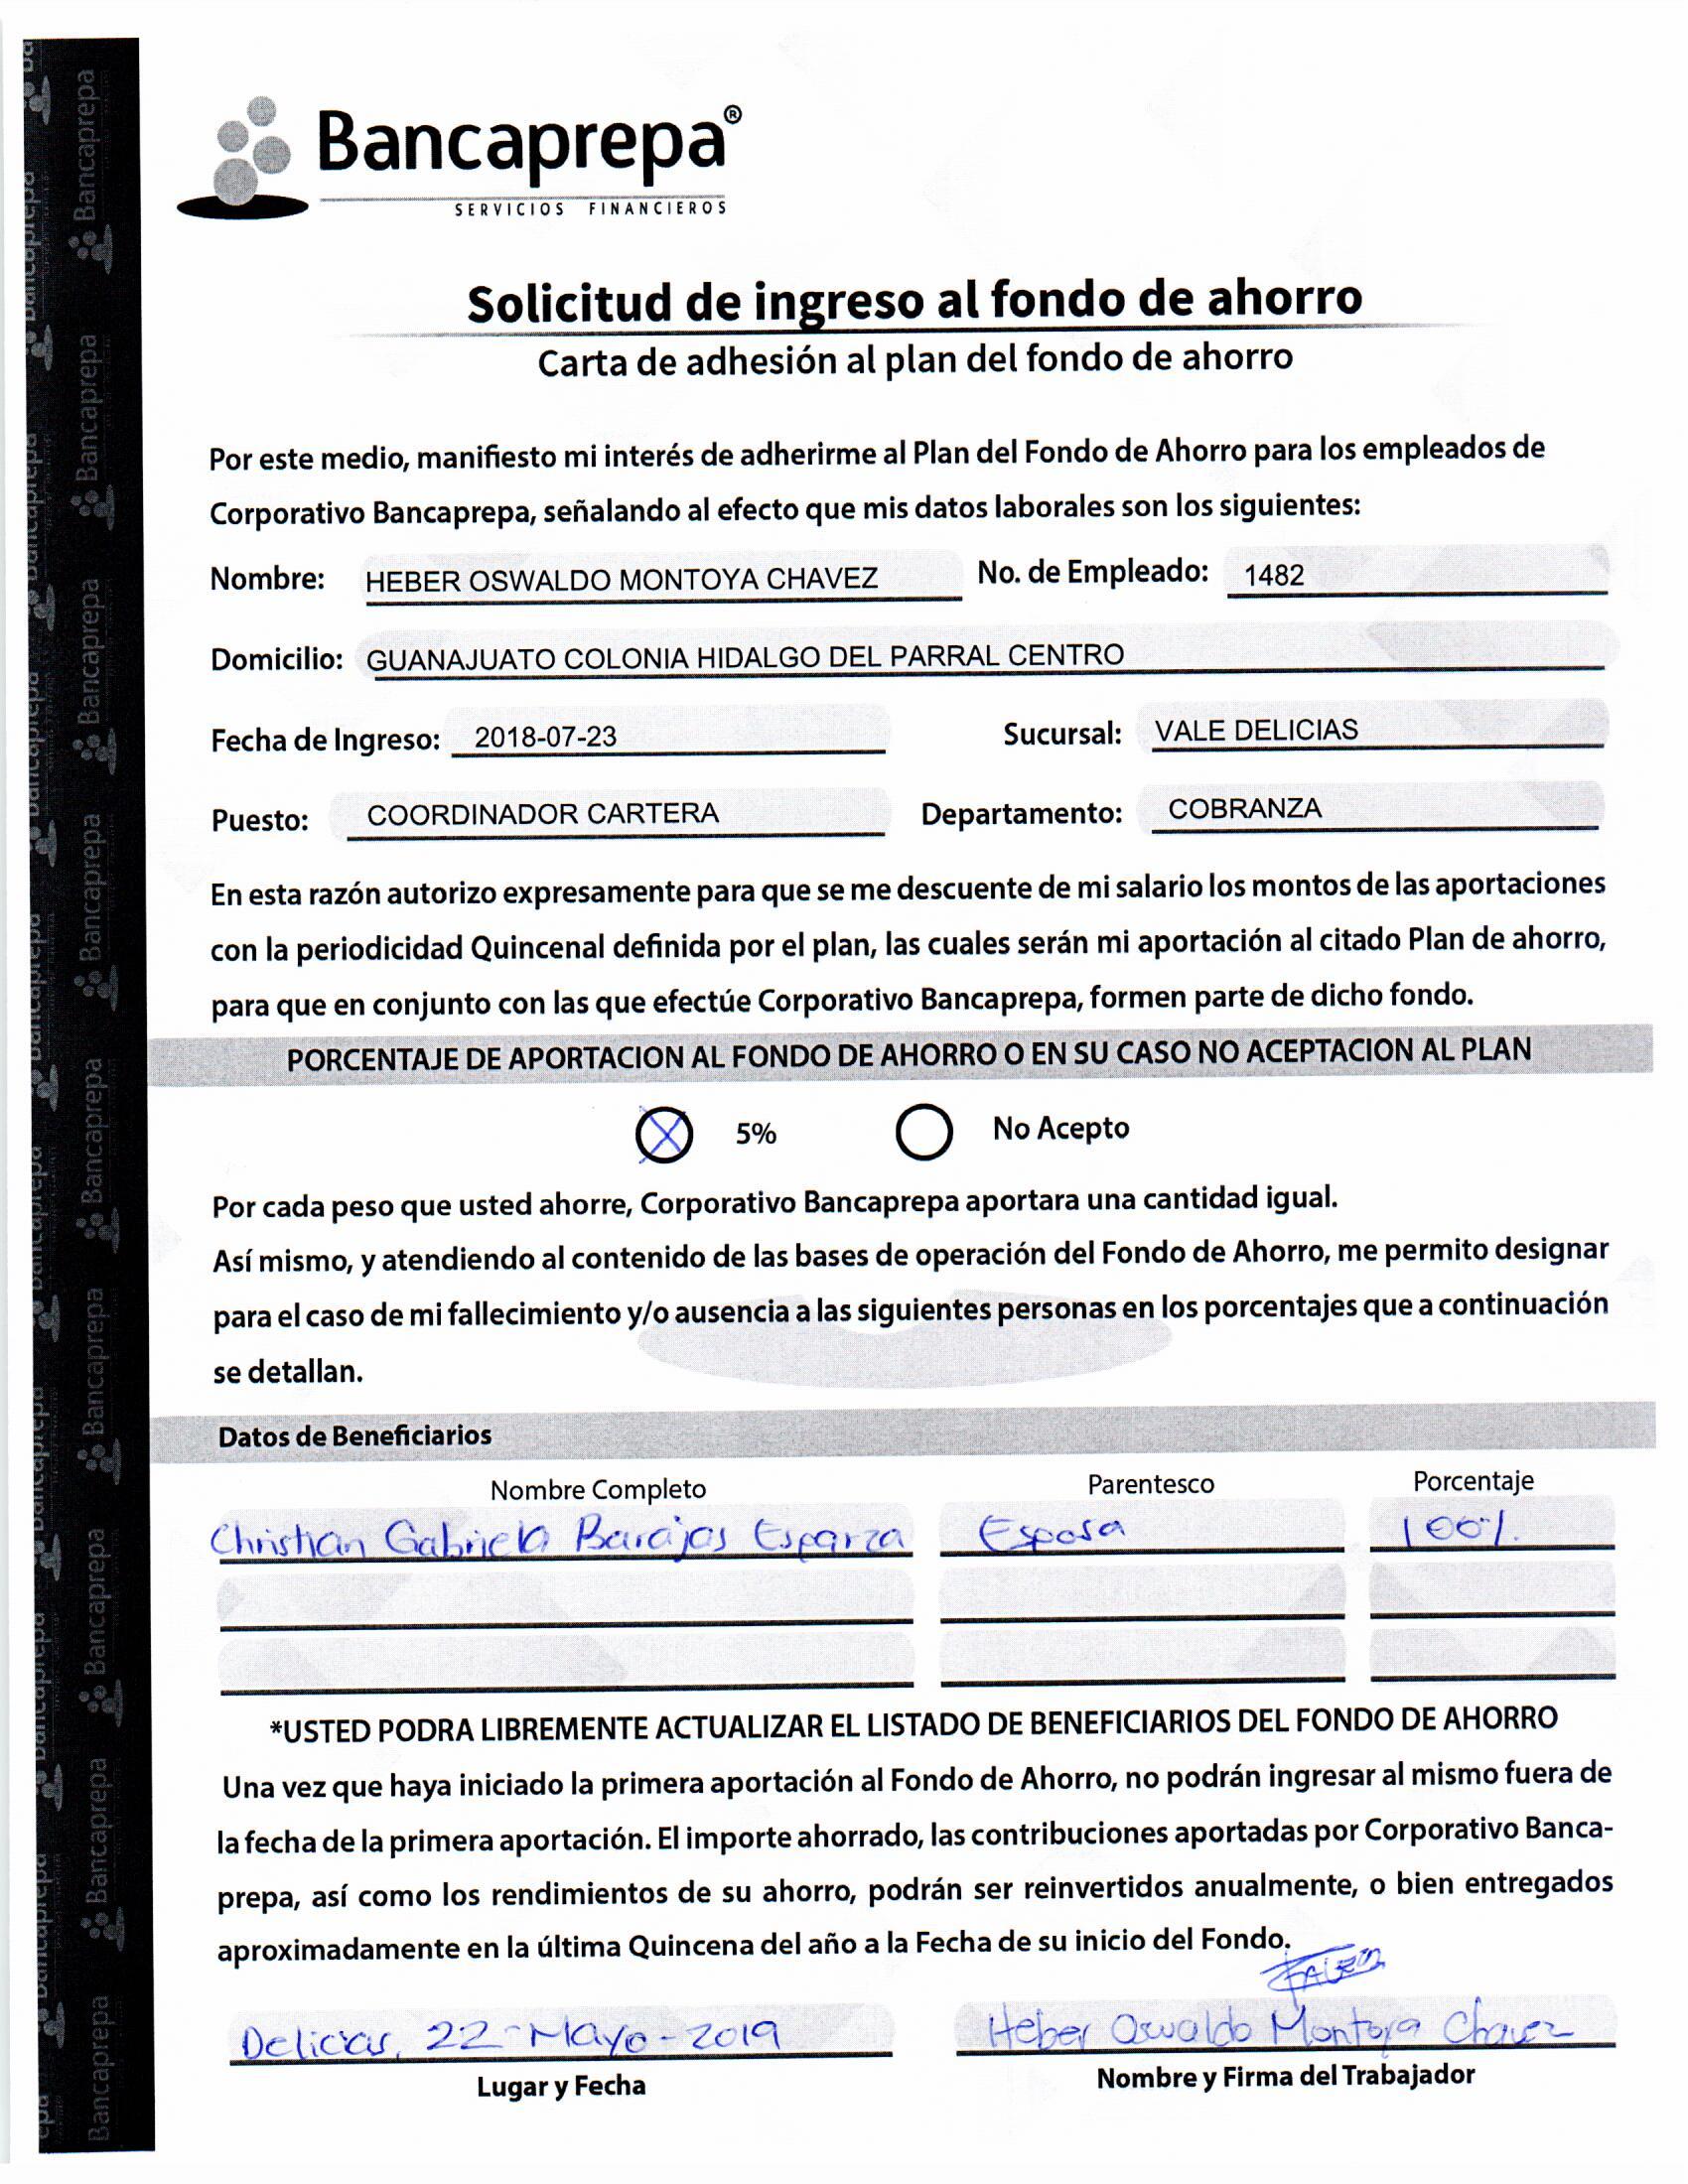 Bancaprepa®
SERVICIOS FINANCIEROS
Solicitud de ingreso al fondo de ahorro
Carta de adhesión al plan del fondo de ahorro
Por este medio, manifiesto mi interés de adherirme al Plan del Fondo de Ahorro para los empleados de
Corporativo Bancaprepa, señalando al efecto que mis datos laborales son los siguientes:
Nombre: HEBER OSWALDO MONTOYA CHAVEZ No. de Empleado: 1482
Domicilio: GUANAJUATO COLONIA HIDALGO DEL PARRAL CENTRO
Fecha de Ingreso: 2018-07-23 Sucursal: VALE DELICIAS
Puesto: COORDINADOR CARTERA Departamento: COBRANZA
En esta razón autorizo expresamente para que se me descuente de mi salario los montos de las aportaciones
con la periodicidad Quincenal definida por el plan, las cuales serán mi aportación al citado Plan de ahorro,
para que en conjunto con las que efectúe Corporativo Bancaprepa, formen parte de dicho fondo.
PORCENTAJE DE APORTACION AL FONDO DE AHORRO O EN SU CASO NO ACEPTACION AL PLAN
5% No Acepto
Por cada peso que usted ahorre, Corporativo Bancaprepa aportara una cantidad igual.
Así mismo, y atendiendo al contenido de las bases de operación del Fondo de Ahorro, me permito designar
para el caso de mi fallecimiento y/o ausencia a las siguientes personas en los porcentajes que a continuación
se detallan.
Datos de Beneficiarios
Nombre Completo Parentesco Porcentaje
Christian Gabriela Barajas Esparza Esposa 100%
*USTED PODRA LIBREMENTE ACTUALIZAR EL LISTADO DE BENEFICIARIOS DEL FONDO DE AHORRO
Una vez que haya iniciado la primera aportación al Fondo de Ahorro, no podrán ingresar al mismo fuera de
la fecha de la primera aportación. El importe ahorrado, las contribuciones aportadas por Corporativo Banca-
prepa, así como los rendimientos de su ahorro, podrán ser reinvertidos anualmente, o bien entregados
aproximadamente en la última Quincena del año a la Fecha de su inicio del Fondo.
Delicias, 22-Mayo-2019 Heber Oswaldo Montoya Chavez
Lugar y Fecha Nombre y Firma del Trabajador